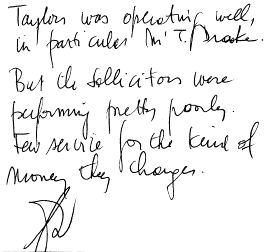 Taylors was operating well,
in particular Mr T. Drake.
But the sollicitors were
performing pretty poorly.
Few service for the kind of
money they charges.